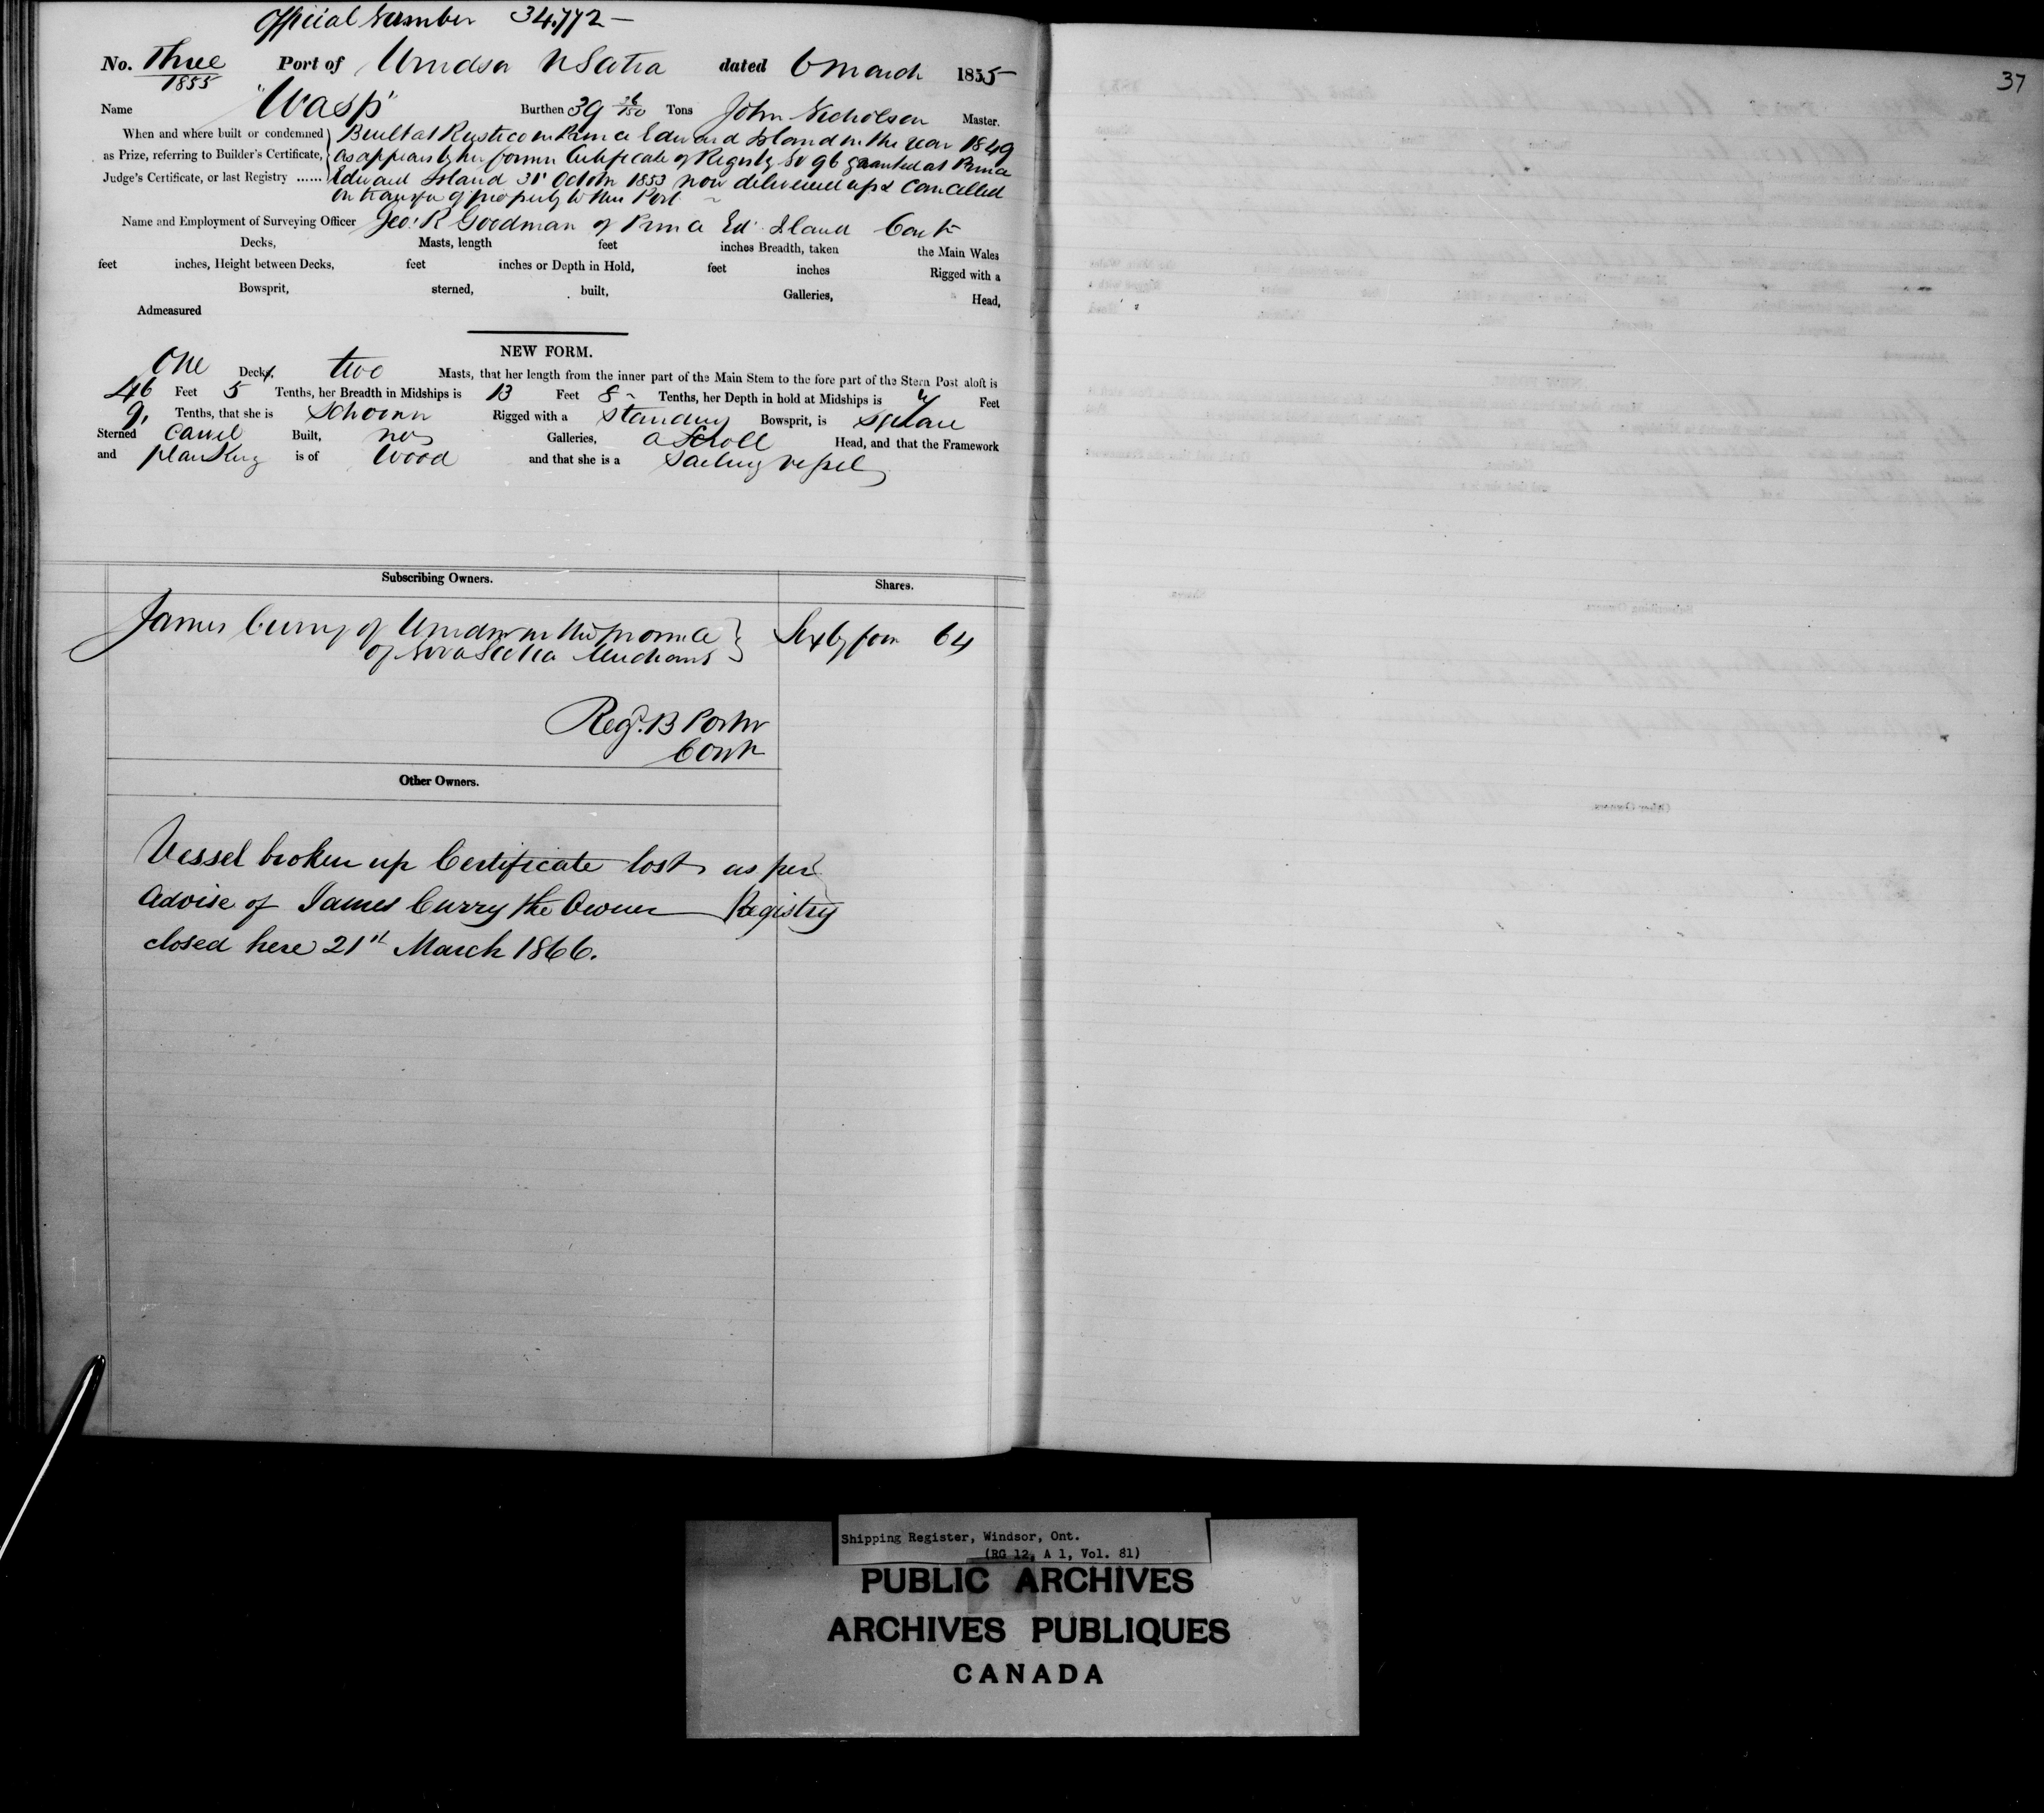 Official Number 34,772 —
37
No. Three Port of Windsor N Scotia dated 6 March 1855
1855
Name "Wasp" Burthen 39 Tons John Nicholson Master.
When and where built or condemned Built at Rustico in Prince Edward Island in the Year 1849
as Prize, referring to Builder's Certificate, as appears by her former Certificate of Registry No 96 granted at Prince
Judge's Certificate, or last Registry ...... Edward Island 31 October 1853 now delivered up & Cancelled
on transfer of property to this Port
Name and Employment of Surveying Officer Geo: R Goodman of Prince Ed Island
Decks, Masts, length feet inches Breadth, taken the Main Wales
feet inches, Height between Decks, feet inches or Depth in Hold, feet inches Rigged with a
Bowsprit, sterned, built, Galleries, Head,
Admeasured
NEW FORM.
One Deck, two Masts, that her length from the inner part of the Main Stem to the fore part of the Stern Post aloft is
46 Feet 5 Tenths, her Breadth in Midships is 13 Feet 8 Tenths, her Depth in hold at Midships is Feet
9 Tenths, that she is Schooner Rigged with a standing Bowsprit, is square
Sterned Carvel Built, no Galleries, a Scroll Head, and that the Framework
and planking is of Wood and that she is a Sailing vessel
Subscribing Owners. Shares.
James Curry of Windsor in the Province Sixty four 64
of Nova Scotia Merchant
Other Owners.
Vessel broken up Certificate lost as per
advise of James Curry the Owner — Registry
closed here 21st March 1866.
Shipping Register, Windsor, Ont.
(RG 12, A 1, Vol. 81)
PUBLIC ARCHIVES
ARCHIVES PUBLIQUES
CANADA